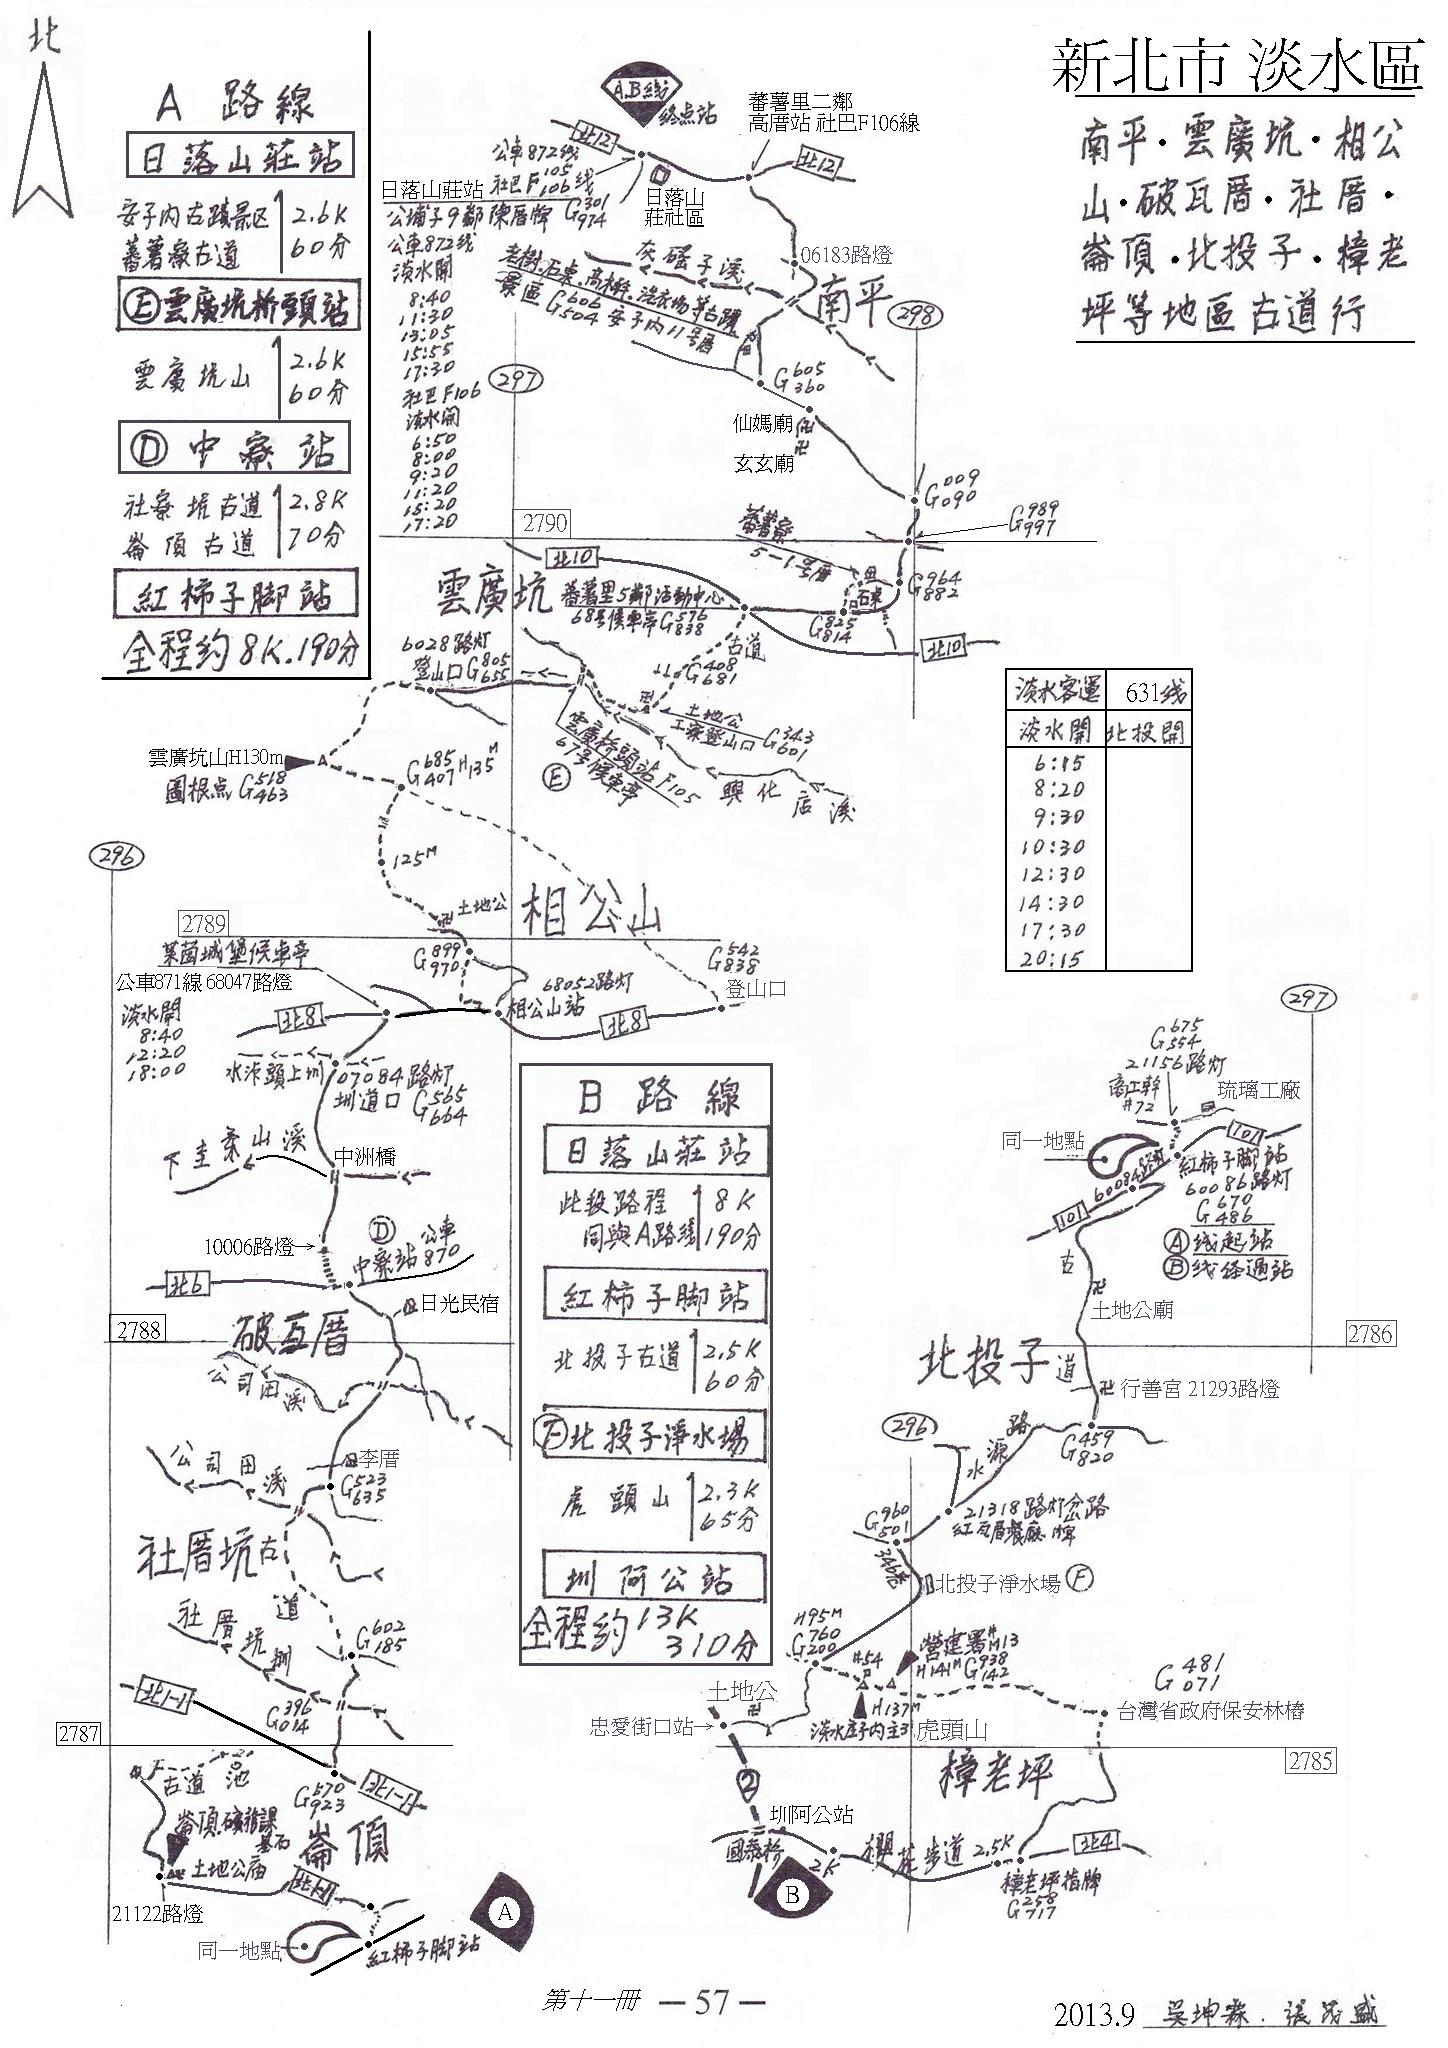 北
新北市 淡水區
南平·雲廣坑·相公
山·破瓦厝·社厝·
崙頂·北投子·樟老
坪等地區古道行
A 路線
日落山莊站
安子內古蹟景区
蕃薯寮古道
2.6K
60分
E雲廣坑桥頭站
雲廣坑山
2.6K
60分
D 中寮站
社寮坑古道
崙頂古道
2.8K
70分
紅柿子脚站
全程约8K.190分
A.B线
终点站
蕃薯里二鄰
高厝站 社巴F106線
北12
北12
公車872线
社巴F105
106线
日落山莊站
G301
974
日落山
莊社區
公埔子9鄰陳厝牌
公車872线
淡水開
8:40
11:30
13:05
15:55
17:30
社巴F106
淡水開
6:50
8:00
9:20
11:20
15:20
17:20
灰磘子溪
老樹.石東.高梯.洗衣场等古蹟
景區G606
504 安子內11号厝
06183路燈
南平
298
297
G605
360
仙媽廟
玄玄廟
G009
090
G989
997
2790
蕃薯寮
5-1号厝
G964
882
G825
814
北10
北10
雲廣坑
蕃薯里5鄰活動中心
68号候車亭G576
838
古道
G408
681
6028路灯
登山口G805
655
土地公
工寮登山口 G343
601
雲廣桥頭站F105
67号候車亭
E
興化店溪
雲廣坑山H130m
圖根点G518
463
G685
407 H135M
125M
296
土地公
相公山
2789
萊茵城堡候車亭
公車871線 68047路燈
淡水開
8:40
12:20
18:00
G899
970
G542
838
登山口
68052路灯
相公山站
北8
北8
水汴頭上圳
07084路灯
圳道口 G565
664
下圭柔山溪
中洲橋
10006路燈→
D
中寮站 公車
870
北6
日光民宿
2788
破瓦厝
公司田溪
公司田溪
李厝
G523
635
社厝坑古
道
社厝坑圳
G602
185
北1-1
G396
014
2787
G570
923
北1-1
古道
池
崙頂.礦務課
基石
崙頂
土地公庙
北1-1
21122路燈
同一地點
紅柿子脚站
A
淡水客運 631线
淡水開 北投開
6:15
8:20
9:30
10:30
12:30
14:30
17:30
20:15
B 路線
日落山莊站
此段路程
同與A路线
8K
190分
紅柿子脚站
北投子古道
2.5K
60分
F北投子淨水場
虎頭山
2.3K
65分
圳阿公站
全程约13K
310分
297
G675
554
21156路灯
#72
琉璃工廠
同一地點
101
101
60084路灯
紅柿子脚站
60086路灯
G670
486
A线起站
B线經過站
古
土地公廟
2786
北投子 道
行善宮 21293路燈
296
水源路
G459
820
21318路灯岔路
紅瓦厝餐廳牌
G960
501
346巷
北投子淨水場 F
H95M
G760
200
#54
營建署#
M13
H141M G938
142
G481
071
H137M
淡水庄子內主3 虎頭山
台灣省政府保安林樁
土地公
忠愛街口站→
2785
樟老坪
2
圳阿公站
國泰桥
2K
櫻花步道
2.5K
北4
樟老坪指牌
G258
717
B
第十一冊
— 57 —
2013.9 吳坤霖.張茂盛